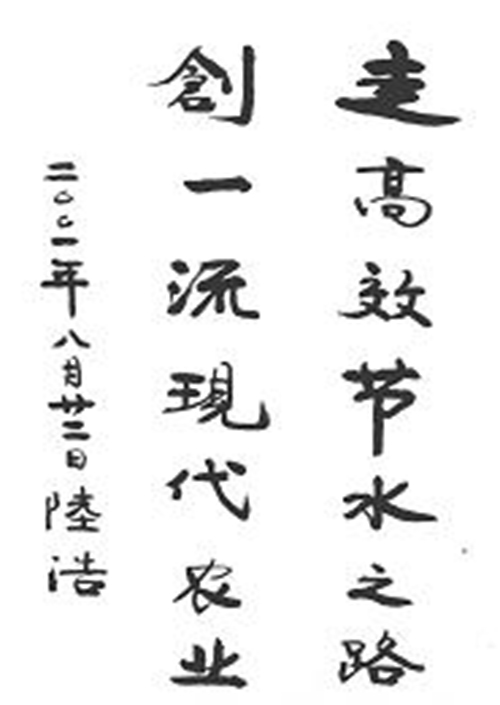 走高效节水之路
創一流現代农业
二〇〇一年八月廿二日陸浩